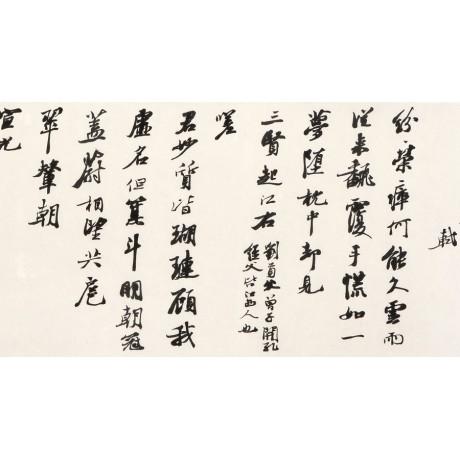 軾
紛紛榮瘁何能久雲雨
從來飜覆手慌如一
夢墮枕中却見
三賢起江右
劉貢父曾子開孔
經父皆江西人也
嗟
君妙質皆瑚璉顧我
虛名但箕斗明朝冠
蓋蔚相望共扈
翠輦朝
宣光